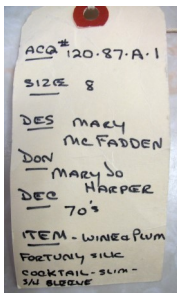 ACQ# 120.87.A.1
SIZE 8
DES MARY
MCFADDEN
DON
MARY JO
HARPER
DEC
70's
ITEM - WINE & PLUM
FORTUNY SILK
COCKTAIL - SLIM -
S/N SLEEVE